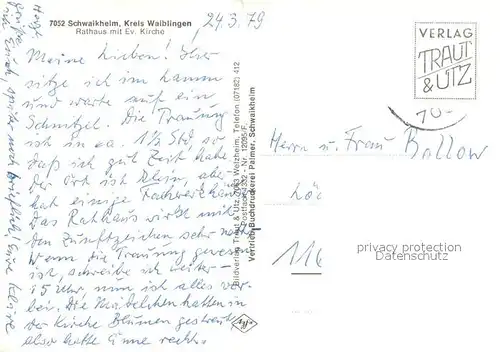 7052 Schwaikheim, Kreis Waiblingen
Rathaus mit Ev. Kirche
24.3.79
Meine Lieben! Hier
sitze ich im Lamm
und warte auf ein
Schnitzel. Die Trauung
ist in ca. 1½ Std, so
daß ich gut Zeit habe.
Der Ort ist klein, aber
hat einige Fachwerkhäuser.
Das Rathaus wirkt mit
den Zunftzeichen sehr nett.
Wenn die Trauung gewesen
ist, schreibe ich weiter -
15 Uhr, nun ist alles vor-
bei. Die Mädelchen hatten in
der Kirche Blumen gestreut
also hatte Enne recht.
noch brieflich! Eure Kläre
Bildverlag Traut & Utz, 7063 Welzheim, Telefon (07182) 412
Postfach 1332 - Nr. 12095/F.
Vertrieb: Buchdruckerei Palmer, Schwaikheim
Agfa
VERLAG
TRAUT
& UTZ
70-
Herrn u. Frau Bollow
116
privacy protection
Datenschutz